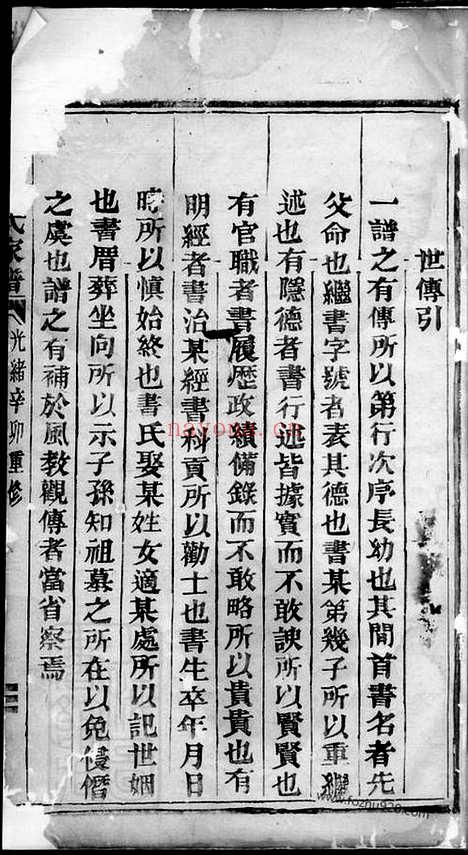 世傳引
一譜之有傳所以第行次序長幼也其間首書名者先
父命也繼書字號者表其德也書某第幾子所以重繼
述也有隱德者書行述皆據實而不敢諛所以賢賢也
有官職者書履歷政績備錄而不敢略所以貴貴也有
明經者書治某經書科貢所以勸士也書生卒年月日
時所以慎始終也書氏娶某姓女適某處所以記世姻
也書厝葬坐向所以示子孫知祖墓之所在以免侵僭
之虞也譜之有補於風教觀傳者當省察焉
氏家譜 光緒辛卯重修
nayona.cn
www.fozhu920.com